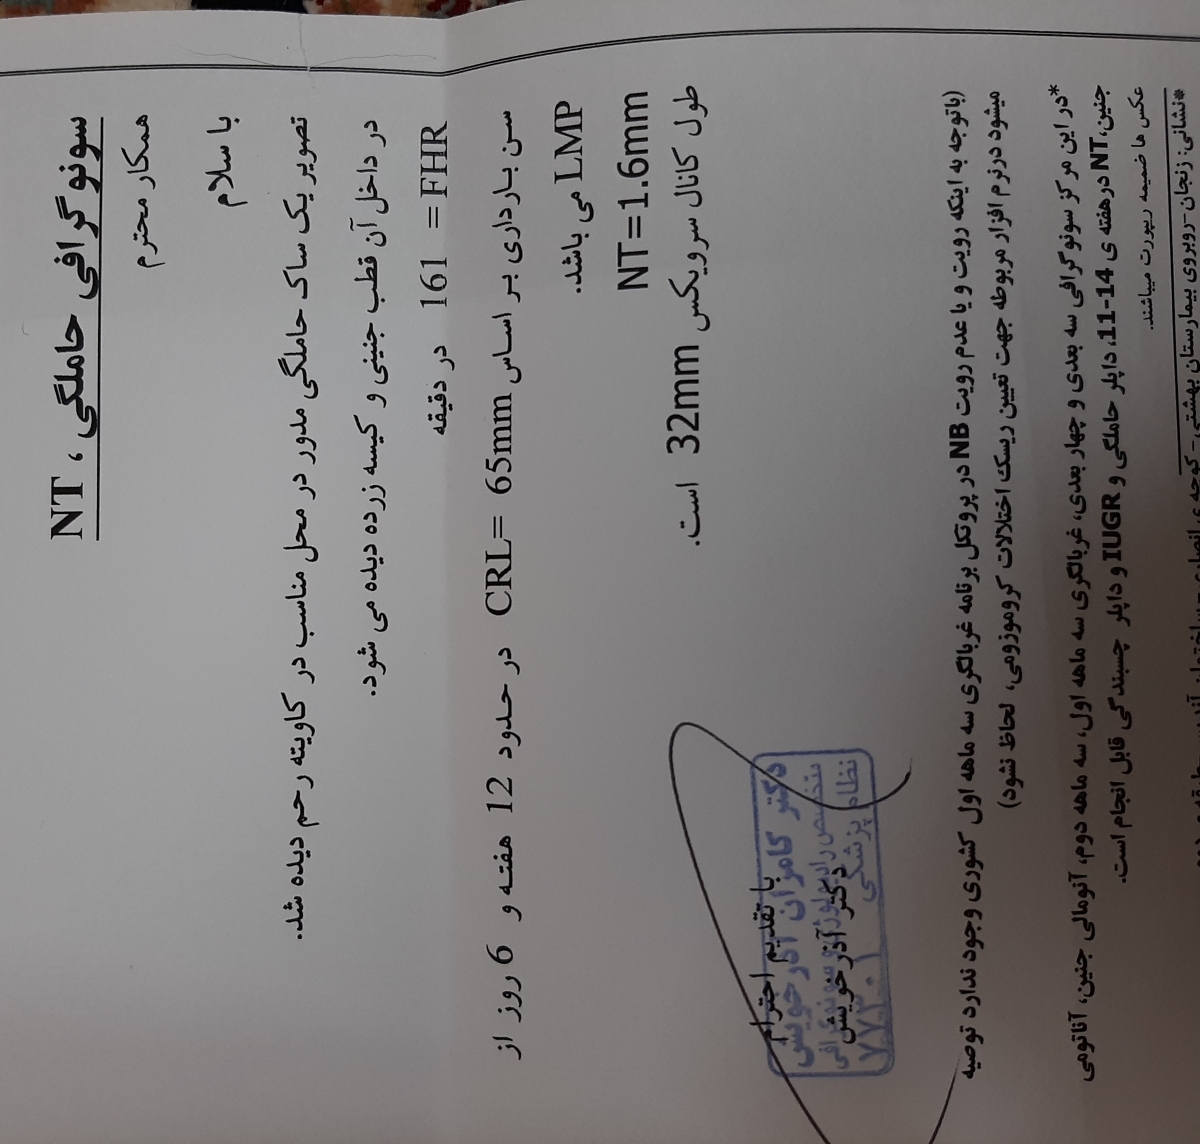 سونوگرافی حاملگی ، NT
همکار محترم
با سلام
تصویر یک ساک حاملگی مدور در محل مناسب در کاویته رحم دیده شد.
در داخل آن قطب جنینی و کیسه زرده دیده می شود.
FHR= 161 در دقیقه
سن بارداری بر اساس CRL= 65mm در حدود 12 هفته و 6 روز از
LMP می باشد.
NT=1.6mm
طول کانال سرویکس 32mm است.
با تقدیم احترام
دکتر آذر خویش
دکتر کامران آذر خویش
متخصص رادیولوژی و سونوگرافی
نظام پزشکی
(باتوجه به اینکه رویت و یا عدم رویت NB در پروتکل برنامه غربالگری سه ماهه اول کشوری وجود ندارد توصیه
میشود درنرم افزار مربوطه جهت تعیین ریسک اختلالات کروموزومی، لحاظ نشود)
*در این مرکز سونوگرافی سه بعدی و چهار بعدی، غربالگری سه ماهه اول، سه ماهه دوم، آنومالی جنین، آناتومی
جنین، NT درهفته ی 14-11، داپلر حاملگی و IUGR و داپلر چسبندگی قابل انجام است.
عکس ها ضمیمه ریپورت میباشند.
*نشانی: زنجان-روبروی بیمارستان بهشتی-